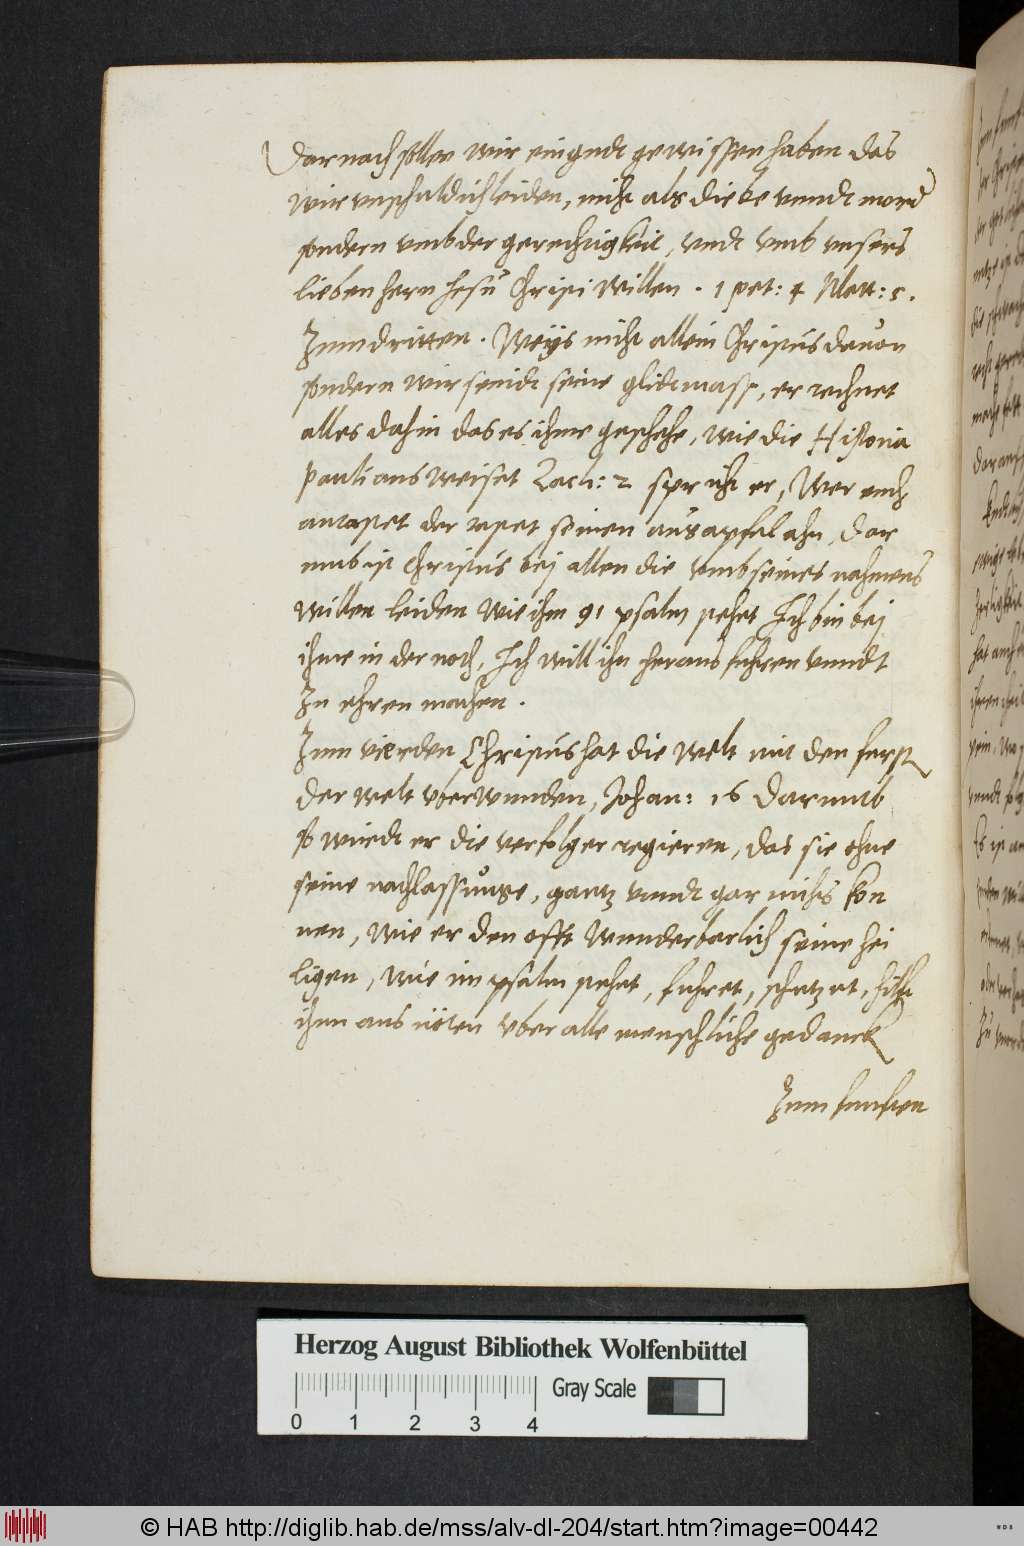 Darnach sollen wir ein gudt gewissen haben das
wir vnschuldich leiden, nicht als diebe vnndt mord
sondern vmb der gerechtigkeit, vndt vmb vnsers
lieben hern Jhesu Christi willen . 1 pet: 4 Matt: 5.
Zum dritten . Weÿs nicht allein Christus dauon
sondern wir seindt seine glidtmass, er rechnet
alles dahin das es ihme geschehe, wie die Historia
Pauli ausweiset Zach: 2 spricht er, Wer euch
antastet der tastet seinen augapfel ahn, Dar
umb ist Christus bej allen die vmb seines nahmens
willen leiden wie ihm 91 psalm stehet Ich bin bej
ihme in der noth, Ich will ihn heraus fuhren vnndt
zu ehren machen .
Zum vierden Christus hat die welt mit den furst
der welt vberwunden, Johan: 16 Darumb
so wirdt er die verfolger regieren, das sie ohne
seine nachlassunge, gantz vnndt gar nichts kon
nen, wie er den offt wunderbarlich seine hei
ligen, wie im psalm stehet, fuhret, schutzet, hilft
ihnn aus nöten vber alle menschliche gedanck
Zum funften
Herzog August Bibliothek Wolfenbüttel
Gray Scale
0 1 2 3 4
© HAB http://diglib.hab.de/mss/alv-dl-204/start.htm?image=00442